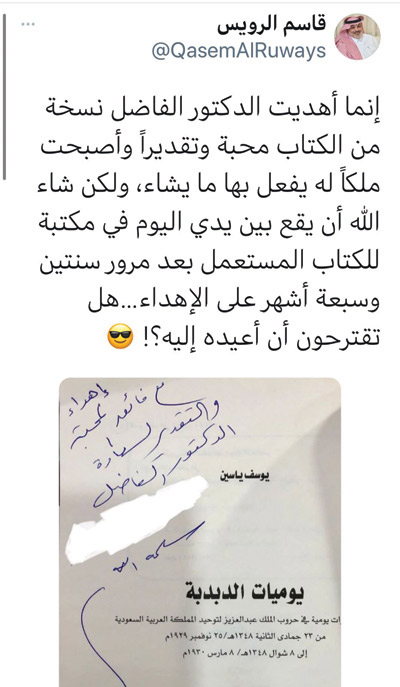 قاسم الرويس
@QasemAlRuways
إنما أهديت الدكتور الفاضل نسخة
من الكتاب محبة وتقديراً وأصبحت
ملكاً له يفعل بها ما يشاء، ولكن شاء
الله أن يقع بين يدي اليوم في مكتبة
للكتاب المستعمل بعد مرور سنتين
وسبعة أشهر على الإهداء...هل
تقترحون أن أعيده إليه؟! 😎
إهداء
مع فائق المحبة
والتقدير لسعادة
الدكتور الفاضل
يوسف ياسين
يوميات الدبدبة
ات يومية في حروب الملك عبدالعزيز لتوحيد المملكة العربية السعودية
من ٢٣ جمادى الثانية ١٣٤٨هـ/ ٢٥ نوفمبر ١٩٢٩م
إلى ٨ شوال ١٣٤٨هـ/ ٨ مارس ١٩٣٠م